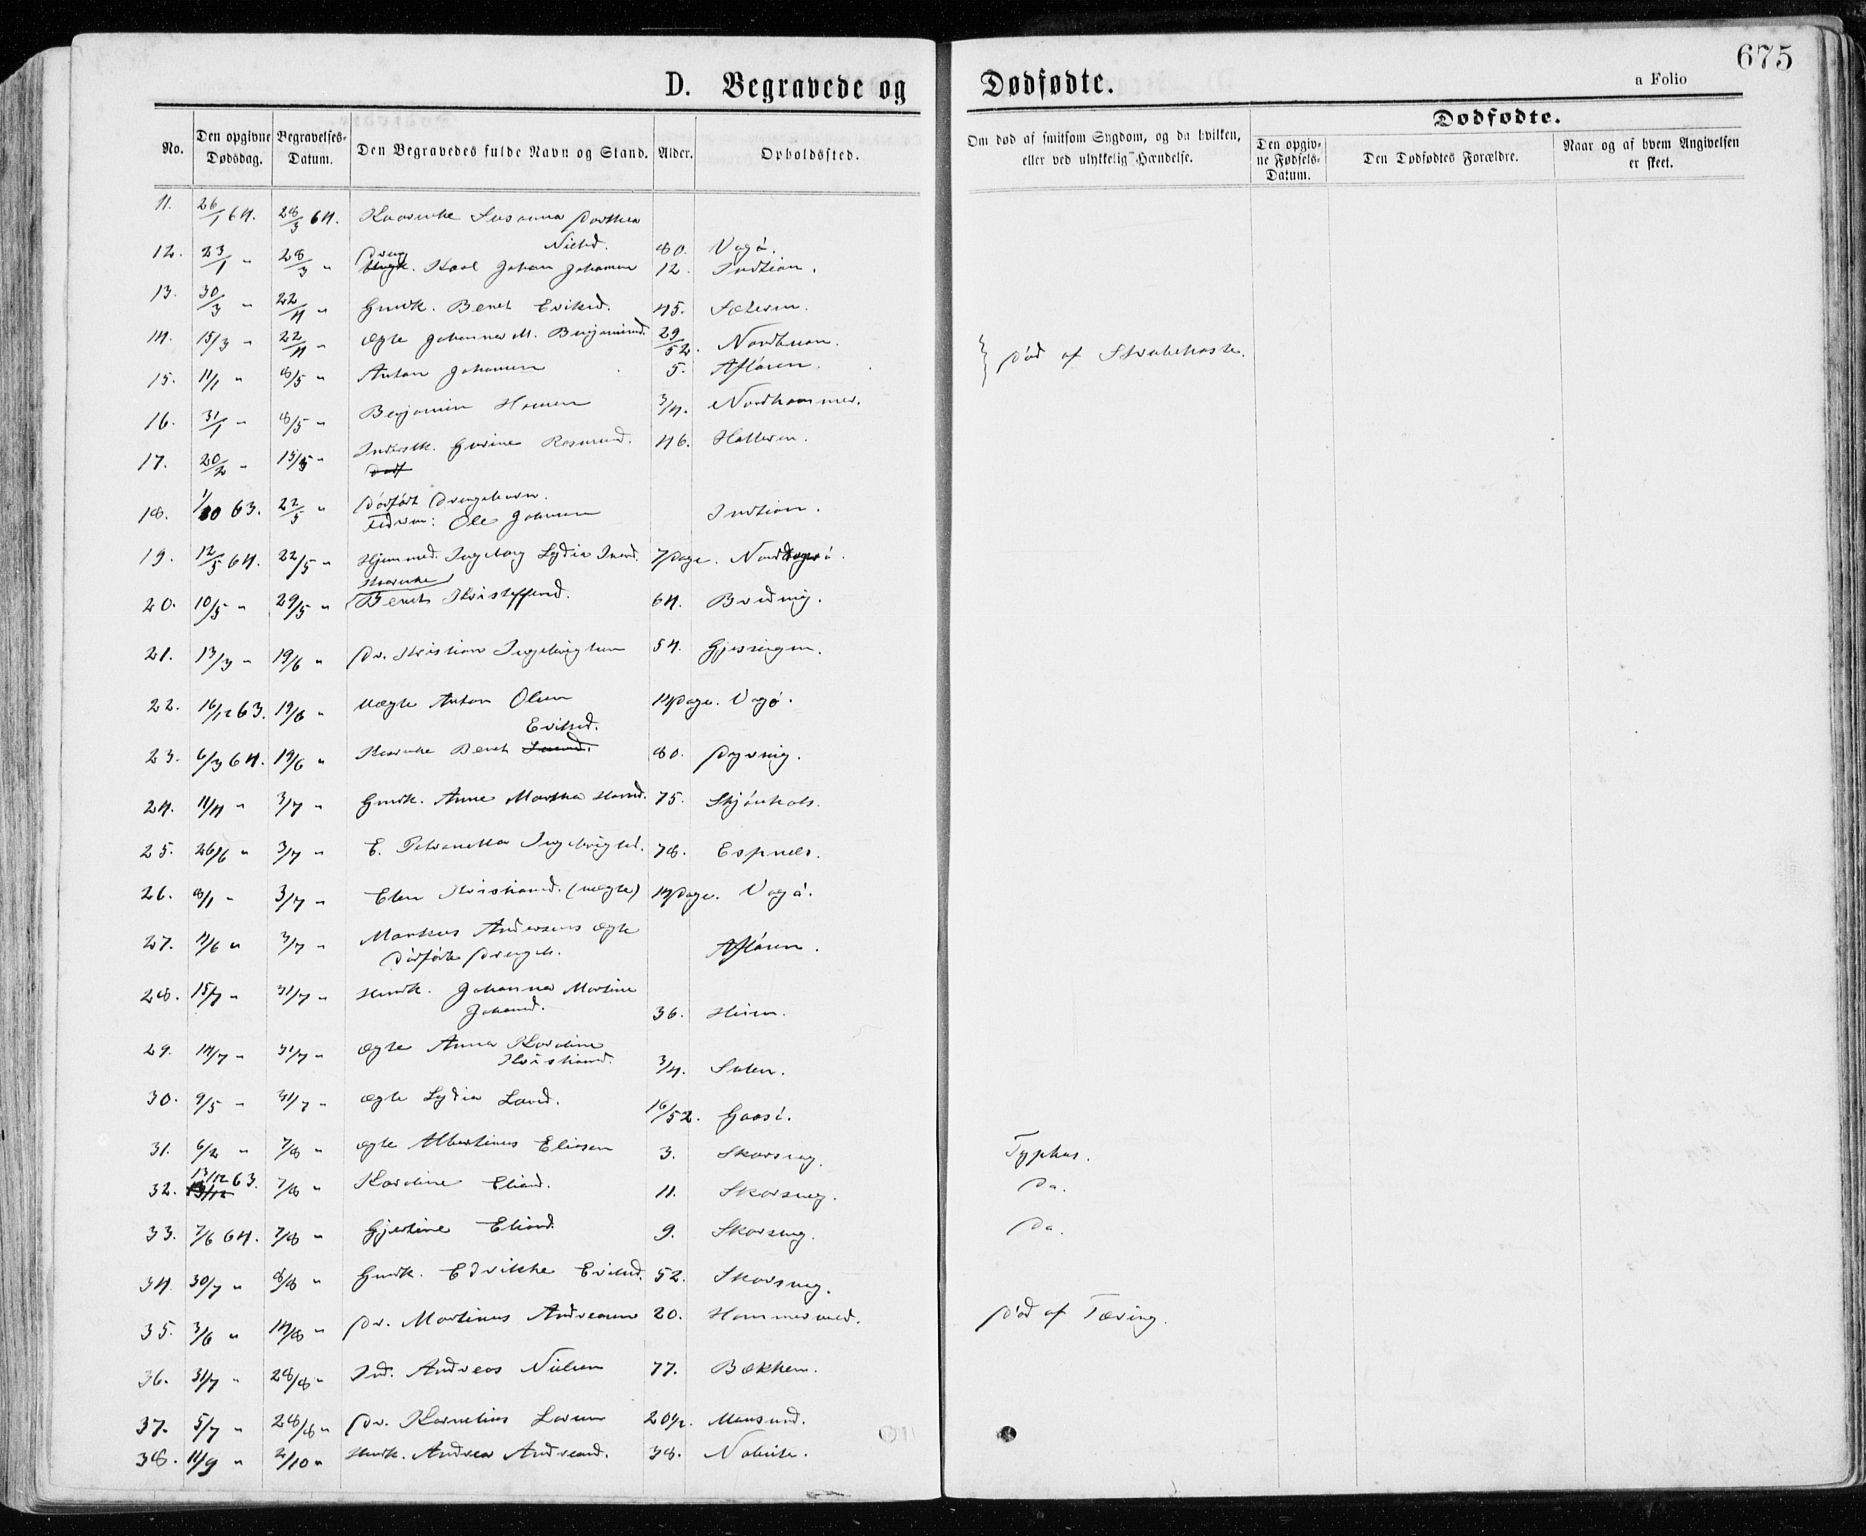 675
D. Begravede og Dødfødte.
a Folio
No.
Den opgivne Dødsdag.
Begravelses-Datum.
Den Begravedes fulde Navn og Stand.
Alder.
Opholdssted.
Om død af smitsom Sygdom, og da hvilken, eller ved ulykkelig Hændelse.
Dødfødte.
Den opgivne Fødsels-Datum.
Den Dødfødtes Forældre.
Naar og af hvem Angivelsen er skeet.
11. 26/1 64. 28/3 64. Susanna Dorthea
Nielsd. 80. Vagø.
12. 23/1 " 28/3 " Dreng Karl Johan Johansen 12. Indtian.
13. 30/3 " 22/4 " Gmdk. Beret Eriksd. 45. Sæteren.
14. 15/3 " 22/4 " Ægte Johanna M. Benjaminsd. 29/52. Nordbuan.
} Død af Strubehoste.
15. 11/1 " 8/5 " Anton Johansen 5. Afløsen.
16. 31/1 " 8/5 " Benjamin Hansen 3/4. Nordhammer.
17. 20/2 " 15/5 " Inderstk. Gurine Rasmusd. 46. Hatteren.
18. 1/10 63. 22/5 " Dødfødt Drengebarn.
Fader: Ole Johnsen Indtian.
19. 12/5 64. 22/5 " Hjemmed. Ingeborg Lydia 7 Dage.
20. 10/5 " 29/5 " Beret Kristoffersd. 64. Bredvig.
21. 13/3 " 19/6 " Dr. Kristian Ingebrigtsen 54. Gjessingen.
22. 16/12 63. 19/6 " Uægte Anton Olsen 14 Dage. Vagø.
Eriksd.
23. 6/3 64. 19/6 " Beret 80. Dyrvig.
24. 11/4 " 3/7 " Gmdk. Anne Martha Hansd. 75. Skjønhals.
25. 26/6 " 3/7 " E. Petronella Ingebrigtsd. 78. Espnes.
26. 8/1 " 3/7 " Elen Kristiansd. (uægte) 14 Dage. Vagø.
27. 4/6 " 3/7 " Markus Andersens ægte
Dødfødte Drengeb. Afløsen.
28. 15/7 " 31/7 " Hmdk. Johanna Martine
Johansd. 36. Heien.
29. 14/7 " 31/7 " Ægte Anna Karoline
Kristiansd. 3/4. Sulen.
30. 9/5 " 31/7 " Ægte Lydia Larsd. 16/52. Gaasø.
31. 6/2 " 7/8 " Ægte Albertinus Eliasen 3. Skarsvag. Typhus.
32. 13/12 63. 7/8 " Karoline Eliasd. 11. Skarsvag. Do.
33. 7/6 64. 7/8 " Gjertine Eliasd. 9. Skarsvag. Do.
34. 30/7 " 8/8 " Gmdk. Edvikke Eriksd. 52. Skarsvag.
35. 3/6 " 14/8 " Dr. Martinus Andreasen 20. Hammervold. Død af Tæring.
36. 31/7 " 28/8 " Ind. Andreas Nielsen 77. Bækken.
37. 5/7 " 28/8 " Dr. Kornelius Larsen 20 1/2. Mausund.
38. 11/9 " 2/10 " Hmdk. Andrea Andreasd. 38.